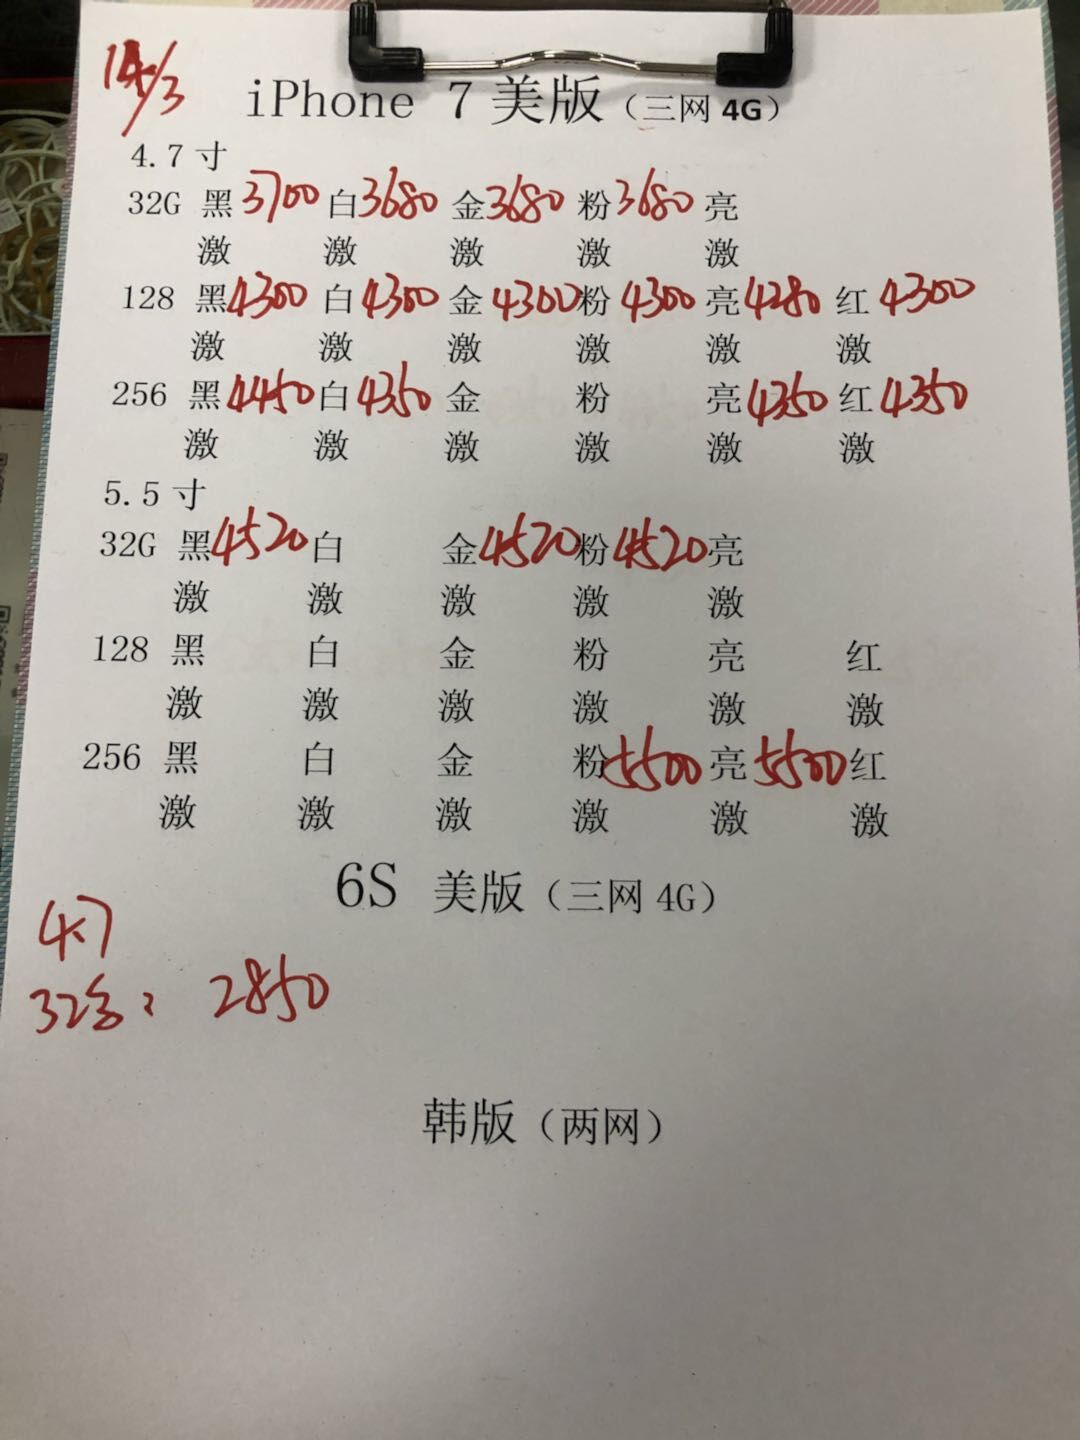 14/3
iPhone 7 美版（三网 4G）
4.7 寸
32G 黑 3700 白 3680 金 3680 粉 3680 亮
激 激 激 激 激
128 黑 4300 白 4300 金 4300 粉 4300 亮 4280 红 4300
激 激 激 激 激 激
256 黑 4450 白 4350 金 粉 亮 4350 红 4350
激 激 激 激 激 激
5.5 寸
32G 黑 4520 白 金 4520 粉 4520 亮
激 激 激 激 激
128 黑 白 金 粉 亮 红
激 激 激 激 激 激
256 黑 白 金 粉 5500 亮 5500 红
激 激 激 激 激 激
6S 美版（三网 4G）
4.7
32 2850
韩版（两网）